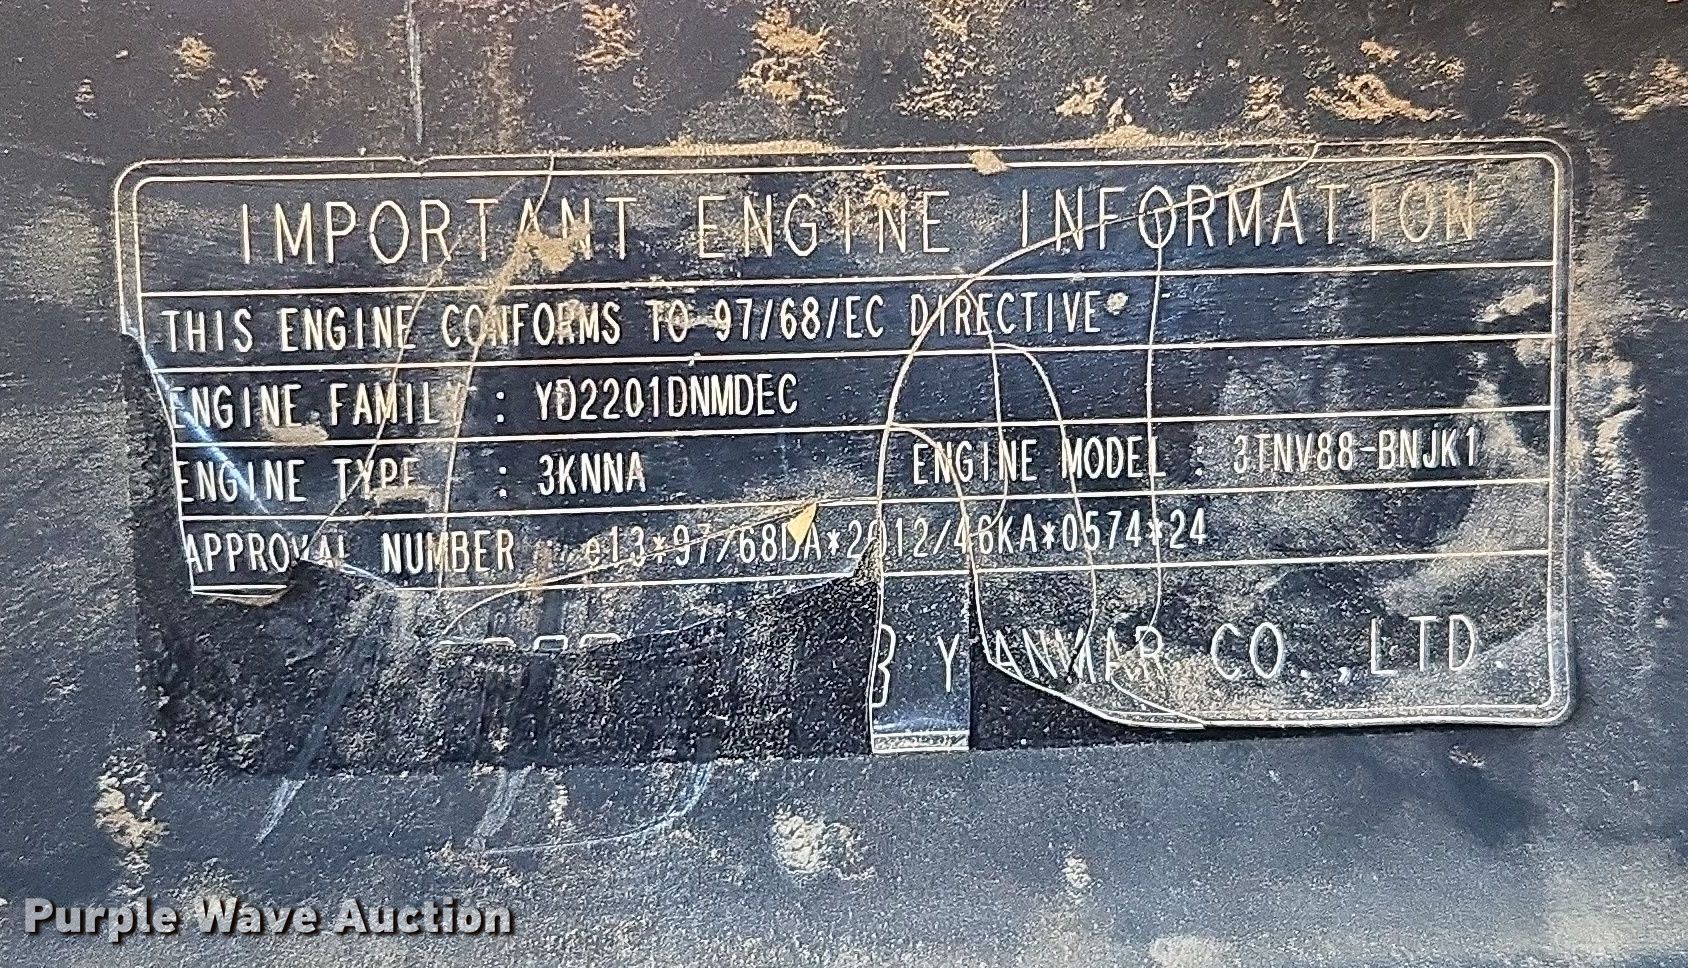 IMPORTANT ENGINE INFORMATION
THIS ENGINE CONFORMS TO 97/68/EC DIRECTIVE
ENGINE FAMILY : YD2201DNMDEC
ENGINE TYPE : 3KNNA ENGINE MODEL : 3TNV88-BNJK1
APPROVAL NUMBER : e13*97/68DA*2012/46KA*0574*24
YANMAR CO.,LTD.
Purple Wave Auction